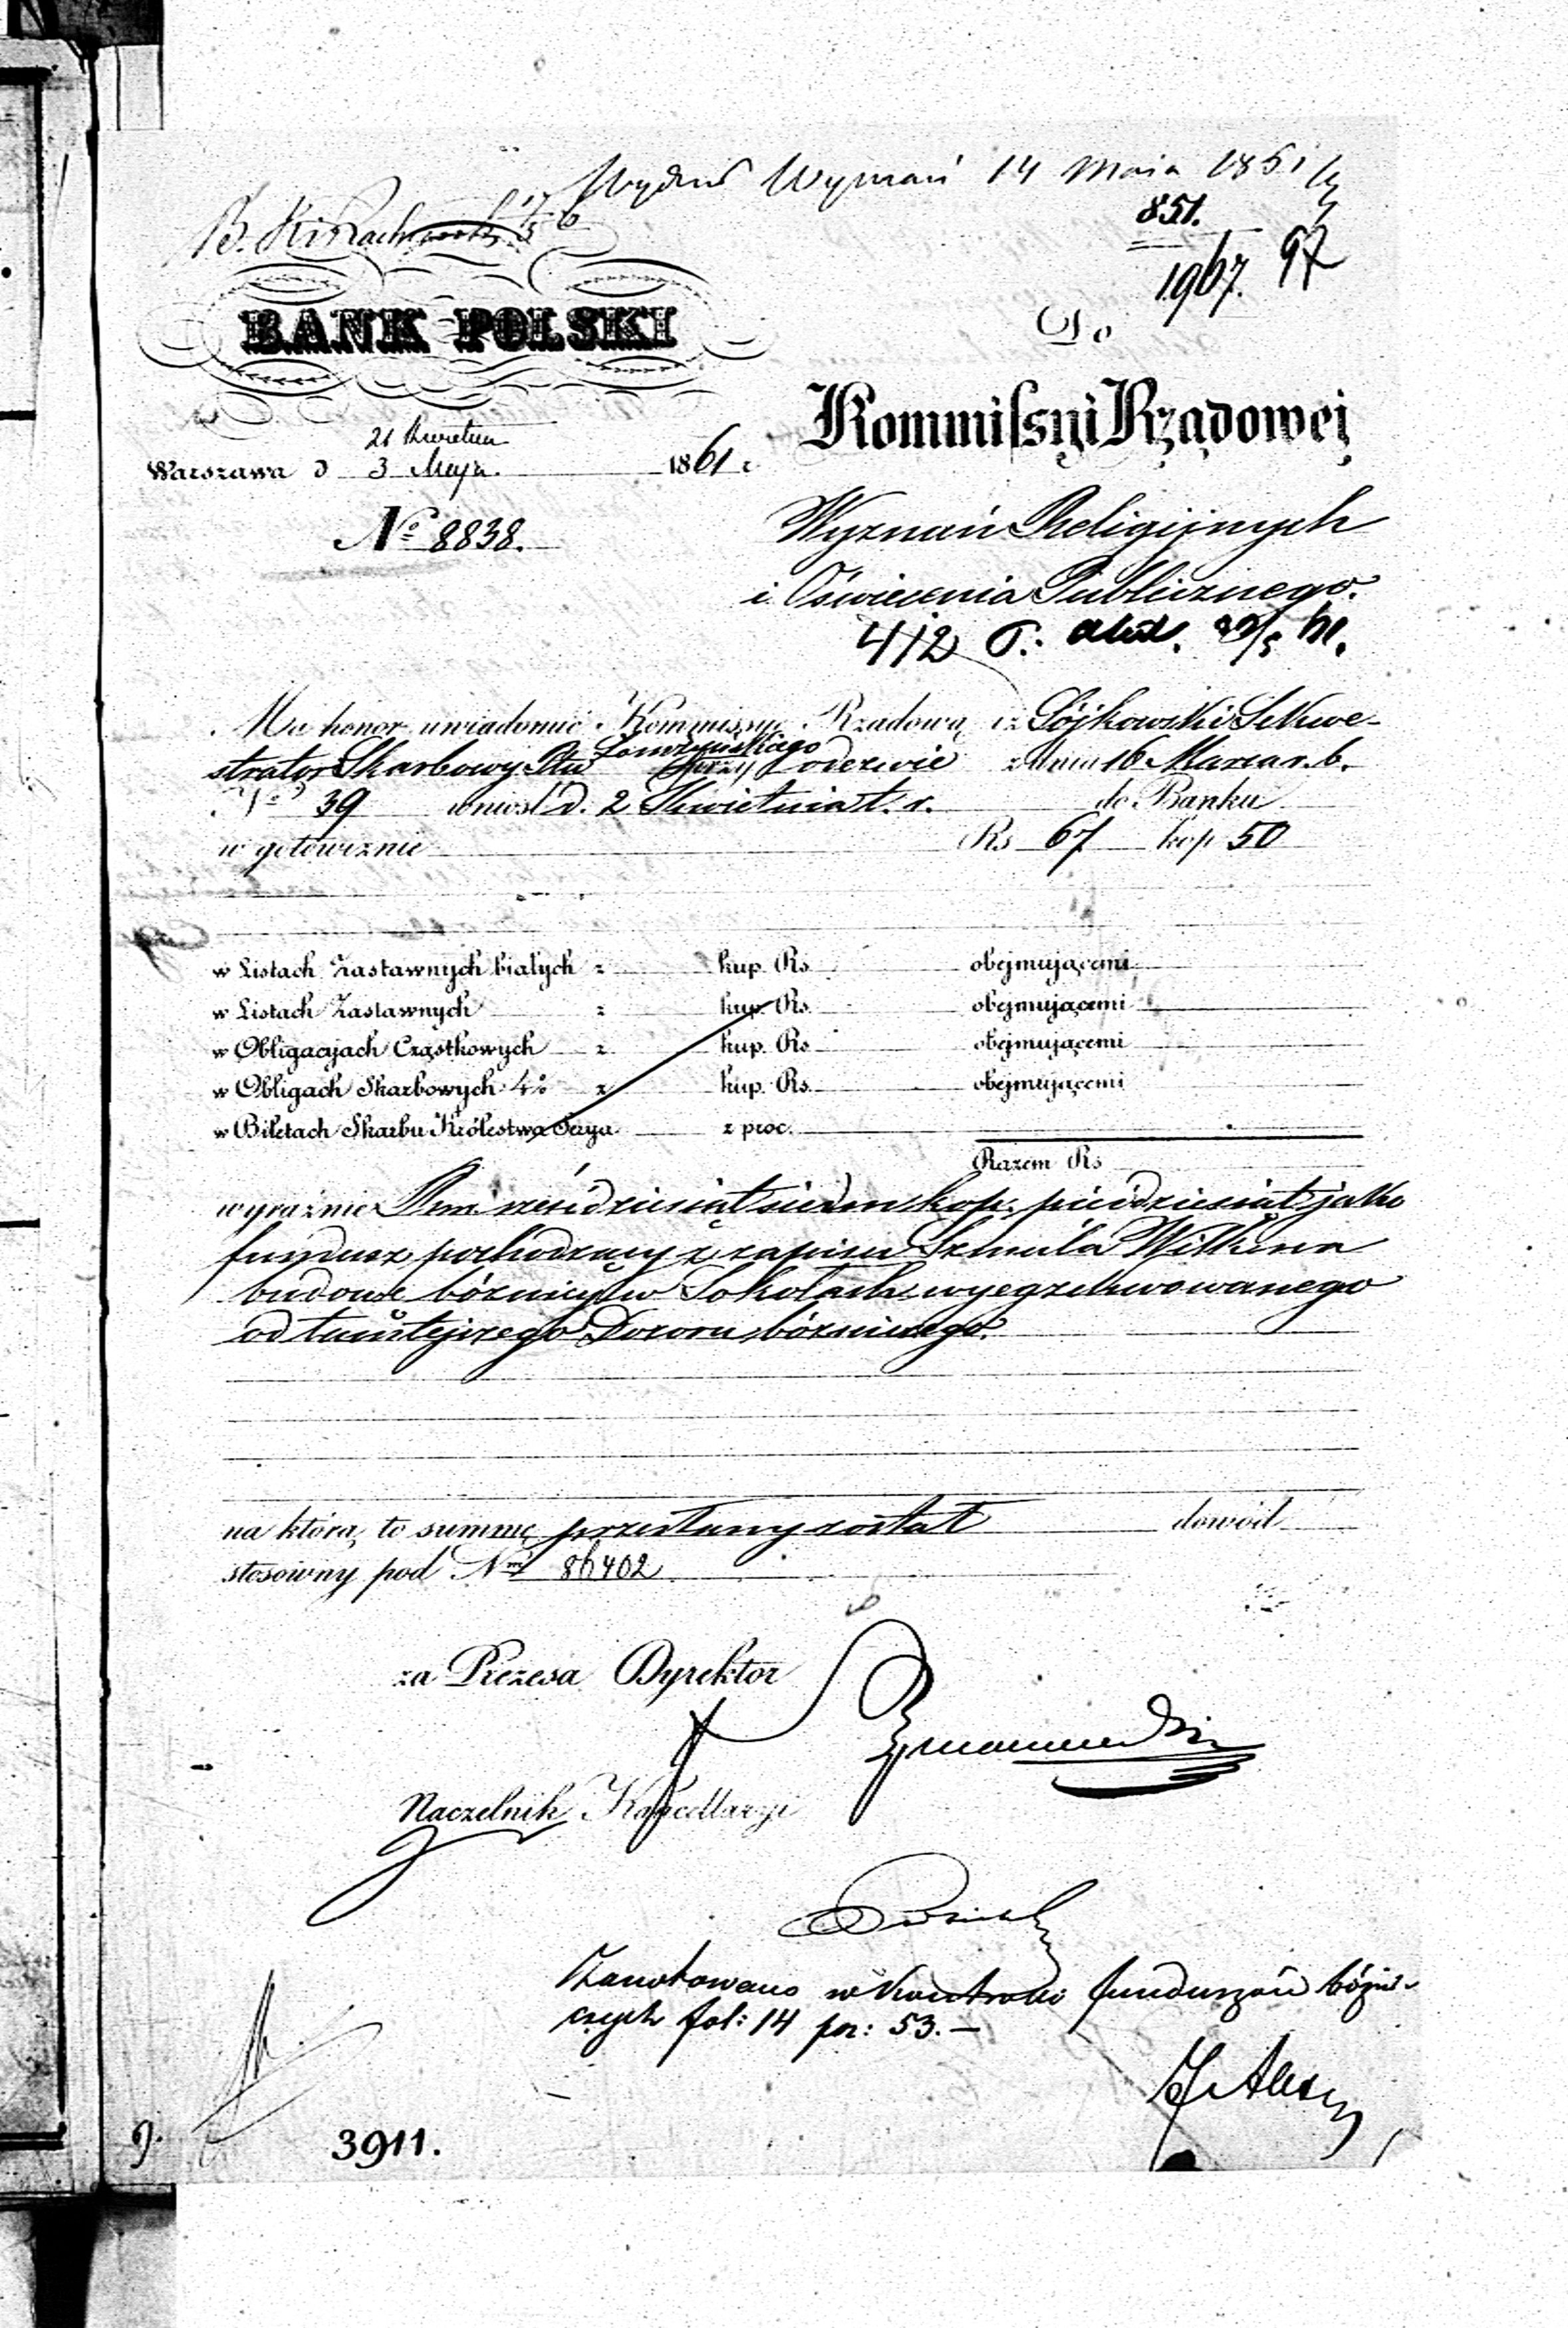 Wydział Wyznań 14 Maia 1861
B. Ki
851.
1967. 97
BANK POLSKI
Do
Kommissyi Rządowej
21 Kwietnia
Warszawa d 3 Maja 1861 r.
No 8838.
Wyznań Religijnych
i Oświecenia Publicznego.
412
Ma honor uwiadomić Kommissyę Rządową iż Sójkowski Sekwe-
strator Skarbowy Ptu Łomżyńskiego przy odezwie z dnia 16 Marca r. b.
No 39 wniosł d. 2 Kwietnia t. r. do Banku
w gotowiznie Rs 67 kop 50
w Listach Zastawnych białych z kup. Rs obejmującemi
w Listach Zastawnych z kup. Rs obejmującemi
w Obligacyjach Cząstkowych z kup. Rs obejmującemi
w Obligach Skarbowych 4% z kup. Rs obejmującemi
w Biletach Skarbu Królestwa Serya z proc.
Razem Rs
wyraźnie Rsr. sześćdziesiąt siedm kop. pięćdziesiąt jako
fundusz pochodzący z zapisu Szmula Witkina
budowę bóżnicy w Sokołach wyegzekwowanego
od tamtejszego Dozoru bóżniczego.
na którą to summę przesłany został dowód
stosowny pod Nm 86402
za Prezesa Dyrektor
Naczelnik Kancellaryi
Zanotowano w Kontroli funduszów bóżni-
czych fol: 14 poz: 53. —
3911.